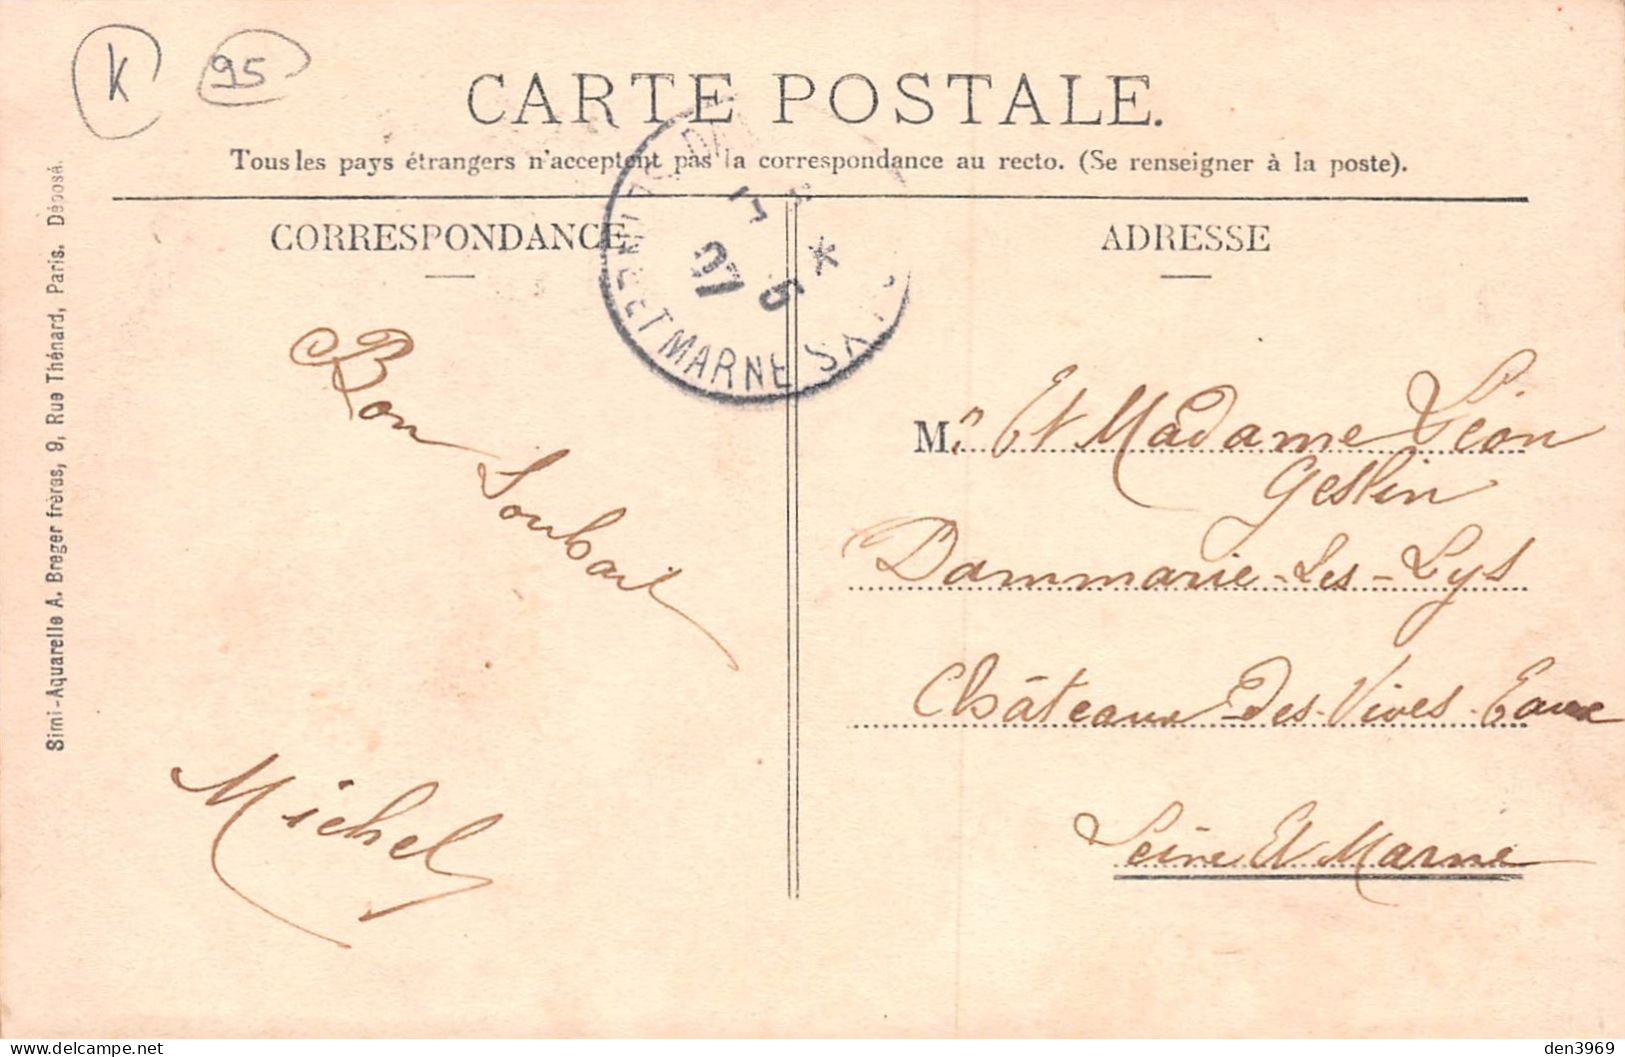 K 95
CARTE POSTALE.
Tous les pays étrangers n'acceptent pas la correspondance au recto. (Se renseigner à la poste).
CORRESPONDANCE
ADRESSE
Simi-Aquarelle A. Breger frères, 9, Rue Thénard, Paris. Déposé.
ET MARNE
07
Bon
Souhait
Michel
Mr Et Madame Léon
Geslin
Dammarie-Les-Lys
Châteaux-Des-Vives-Eaux
Seine Et Marne
den3969